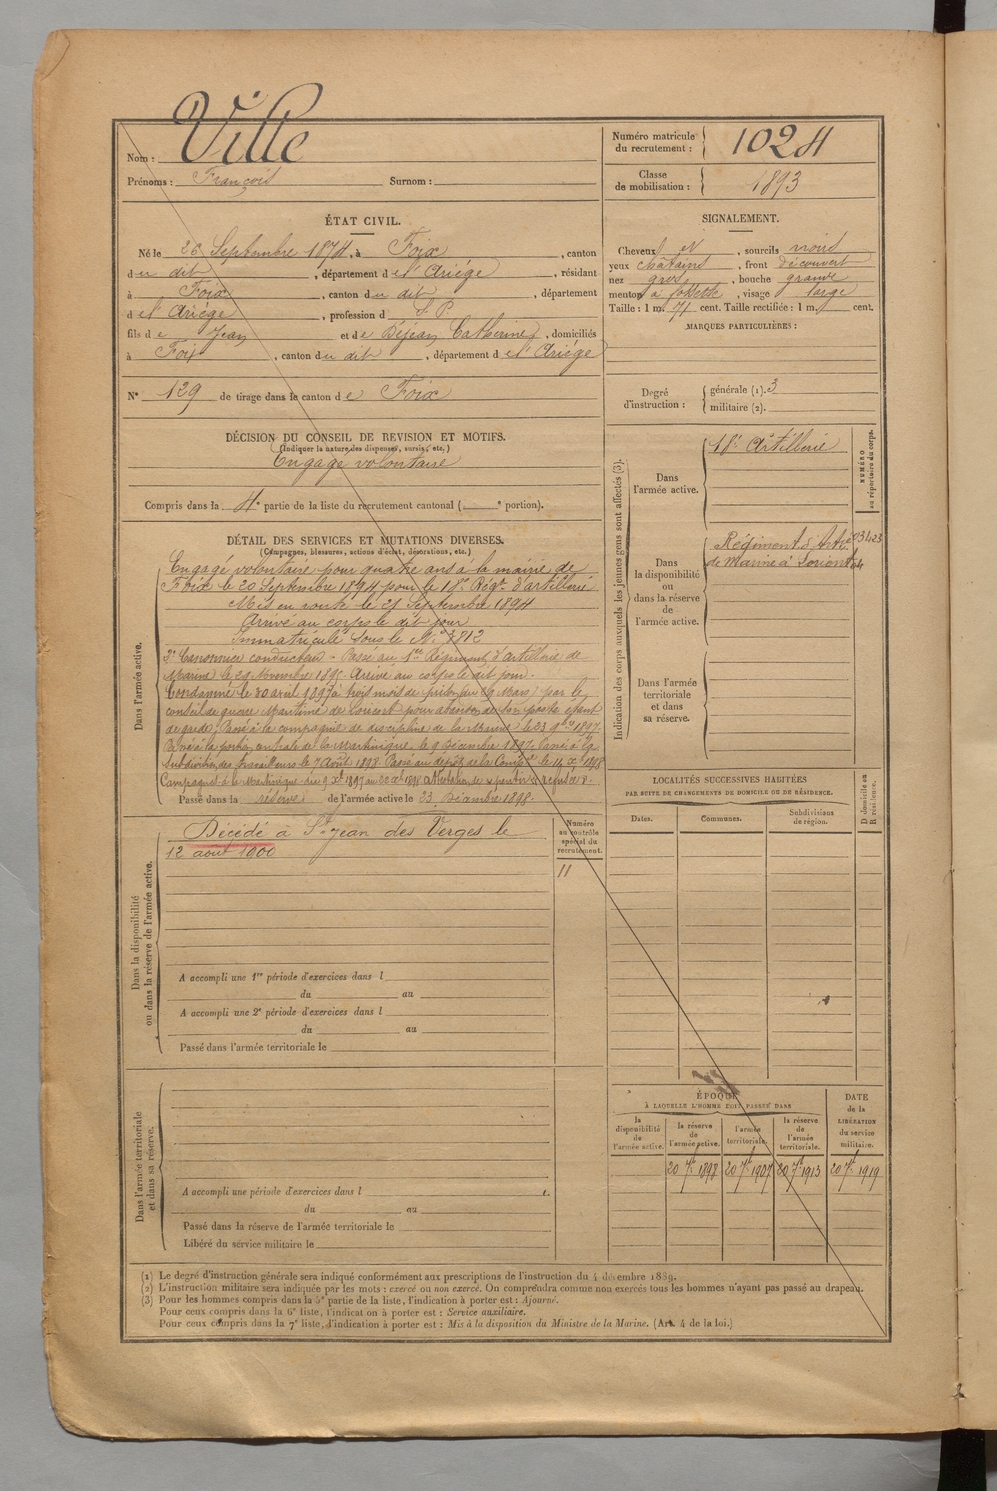 Nom : Ville
Prénoms : François Surnom :
Numéro matricule du recrutement : 1024
Classe de mobilisation : 1893
ÉTAT CIVIL.
Né le 26 Septembre 1874, à Foix, canton
du dit, département de l'Ariége, résidant
à Foix, canton du dit, département
de l'Ariége, profession d S.P.
fils de Jean et de Déjean Catherine, domiciliés
à Foix, canton du dit, département de l'Ariége
N° 129 de tirage dans le canton de Foix
SIGNALEMENT.
Cheveux et, sourcils noirs
yeux châtains, front découvert
nez gros, bouche grande
menton à fossette, visage large
Taille : 1 m. 71 cent. Taille rectifiée : 1 m. cent.
MARQUES PARTICULIÈRES :
Degré d'instruction :
générale (1). 3
militaire (2).
DÉCISION DU CONSEIL DE REVISION ET MOTIFS.
(Indiquer la nature des dispenses, sursis, etc.)
Engagé volontaire
Compris dans la 4e partie de la liste du recrutement cantonal ( e portion).
DÉTAIL DES SERVICES ET MUTATIONS DIVERSES.
(Campagnes, blessures, actions d'éclat, décorations, etc.)
Dans l'armée active.
Engagé volontaire pour quatre ans à la mairie de
Foix le 20 Septembre 1894 pour le 18e Régt d'artillerie
Mis en route le 21 Septembre 1894
Arrivé au corps le dit jour
Immatriculé sous le N° 3812
2e Canonnier conducteur - Passé au 1er Régiment d'artillerie de
Marine le 21 Novembre 1895. Arrivé au corps le dit jour.
Condamné le 30 avril 1897 à trois mois de prison par le
conseil de guerre Maritime de Lorient pour abandon de son poste étant
de garde. Passé à la compagnie de discipline de la Marine le 23 9bre 1897.
Passé à la portion centrale de la Martinique le 9 Décembre 1897. Passé à la
Subdivision des travailleurs le 7 Août 1898. Passé au dépôt de la Compie le 14 Xbre 1898
Campagnes à la Martinique du 9 Xbre 1897 au
Passé dans la réserve de l'armée active le 23 Décembre 1898.
Indication des corps auxquels les jeunes gens sont affectés (3).
Dans l'armée active.
18e Artillerie
NUMÉRO au répertoire du corps.
Dans la disponibilité ou dans la réserve de l'armée active.
Régiment d'Artie
de Marine à Lorient
Dans l'armée territoriale et dans sa réserve.
LOCALITÉS SUCCESSIVES HABITÉES
PAR SUITE DE CHANGEMENTS DE DOMICILE OU DE RÉSIDENCE.
Dates. Communes. Subdivisions de région. D domicile ou R résidence.
Dans la disponibilité ou dans la réserve de l'armée active.
Décédé à St Jean des Verges le
12 août 1900
Numéro au contrôle spécial du recrutement.
11
A accompli une 1re période d'exercices dans l
du au
A accompli une 2e période d'exercices dans l
du au
Passé dans l'armée territoriale le
Dans l'armée territoriale et dans sa réserve.
A accompli une période d'exercices dans l
du au
Passé dans la réserve de l'armée territoriale le
Libéré du service militaire le
ÉPOQUE
À LAQUELLE L'HOMME DOIT PASSER DANS
la disponibilité de l'armée active.
la réserve de l'armée active.
l'armée territoriale.
la réserve de l'armée territoriale.
DATE de la LIBÉRATION du service militaire.
20 7bre 1898 20 7bre 1907 20 7bre 1913 20 7bre 1919
(1) Le degré d'instruction générale sera indiqué conformément aux prescriptions de l'instruction du 4 décembre 1889.
(2) L'instruction militaire sera indiquée par les mots : exercé ou non exercé. On comprendra comme non exercés tous les hommes n'ayant pas passé au drapeau.
(3) Pour les hommes compris dans la 5e partie de la liste, l'indication à porter est : Ajourné.
Pour ceux compris dans la 6e liste, l'indication à porter est : Service auxiliaire.
Pour ceux compris dans la 7e liste, l'indication à porter est : Mis à la disposition du Ministre de la Marine. (Art. 4 de la loi.)